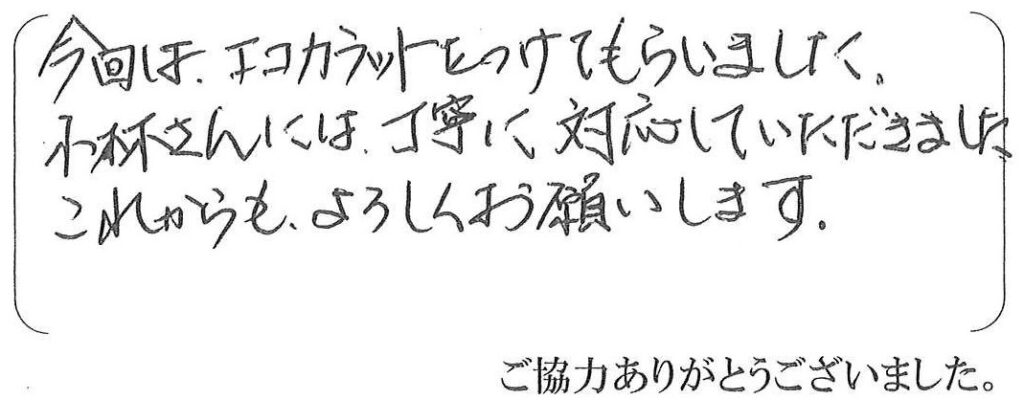 今回は、エコカラットをつけてもらいました。
小林さんには、丁寧に対応していただきました
これからも、よろしくお願いします。
ご協力ありがとうございました。